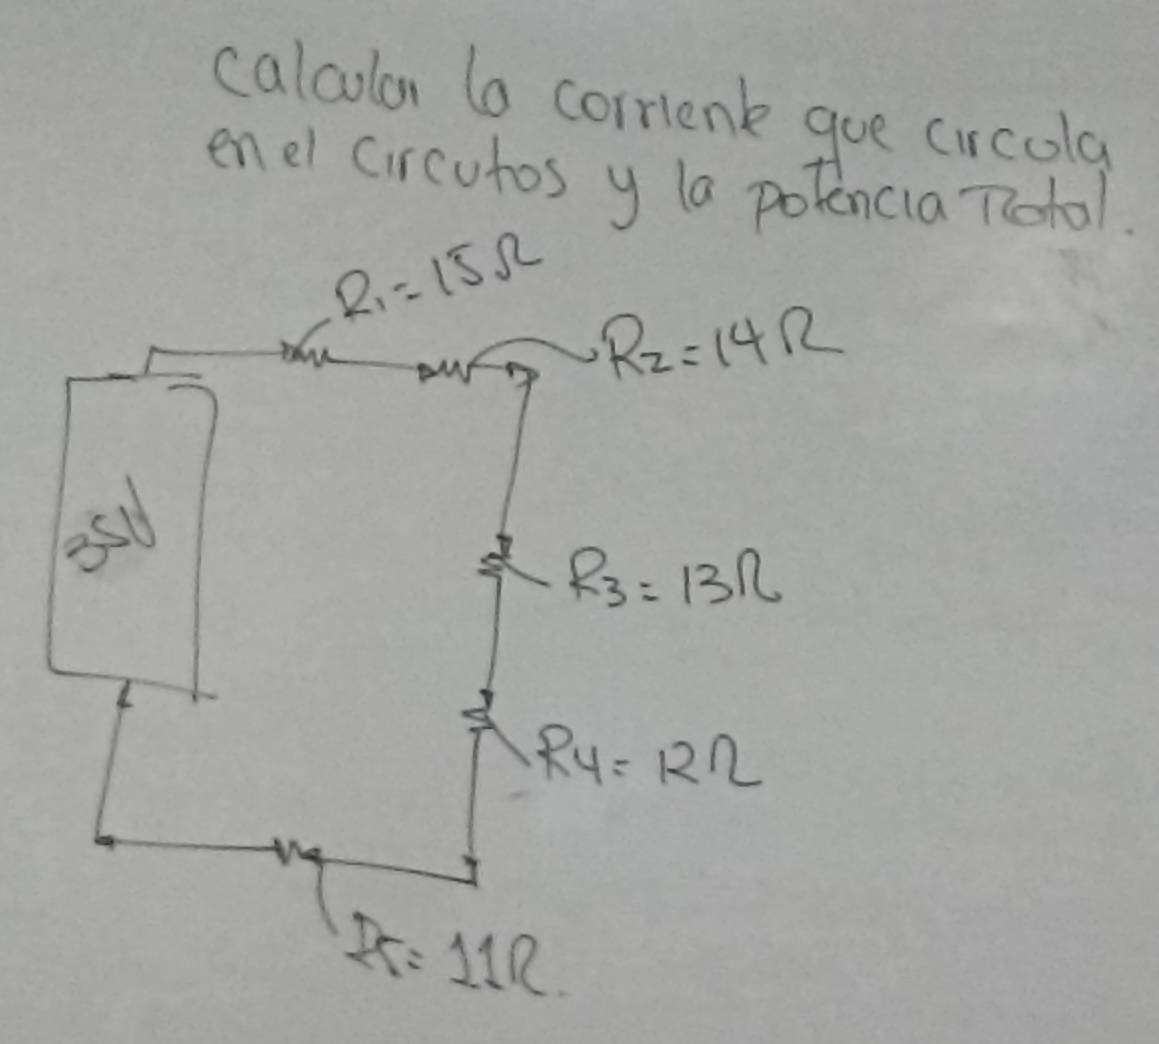 Calcular la corriente que circula
en el circutos y la potencia Total.
R1=15Ω
R2=14Ω
35V
R3=13Ω
R4=12Ω
R5=11Ω.